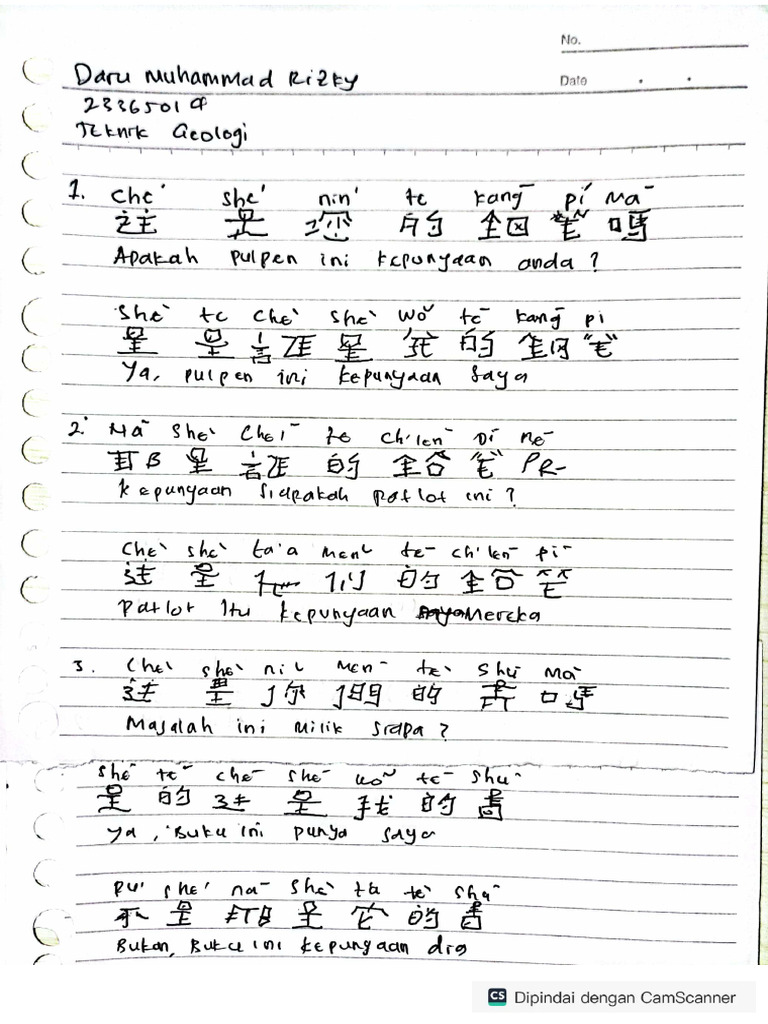 No.
Daru Muhammad Rizky
Date
Teknik Geologi
1. che' she' nin' te kang pi ma
这 是 您 的 钢 笔 吗
Apakah pulpen ini kepunyaan anda ?
she te che she wo te kang pi
是 是 是 我 的 钢 笔
Ya, pulpen ini kepunyaan saya
2. Na she che te ch'ien pi ne
那 是 的 铅 笔
kepunyaan siapakah patlot ini ?
che she ta'a men te ch'ien pi
这 是 他 们 的 铅 笔
patlot itu kepunyaan Mereka
3. che she ni men te shu ma
这 是 你 们 的 书 吗
Masalah ini milik siapa ?
she te che she wo te shu
是 的 这 是 我 的 書
ya, Buku ini punya saya
pu she na she ta te shu
不 是 那 是 它 的 書
Bukan, Buku ini kepunyaan dia
CS Dipindai dengan CamScanner